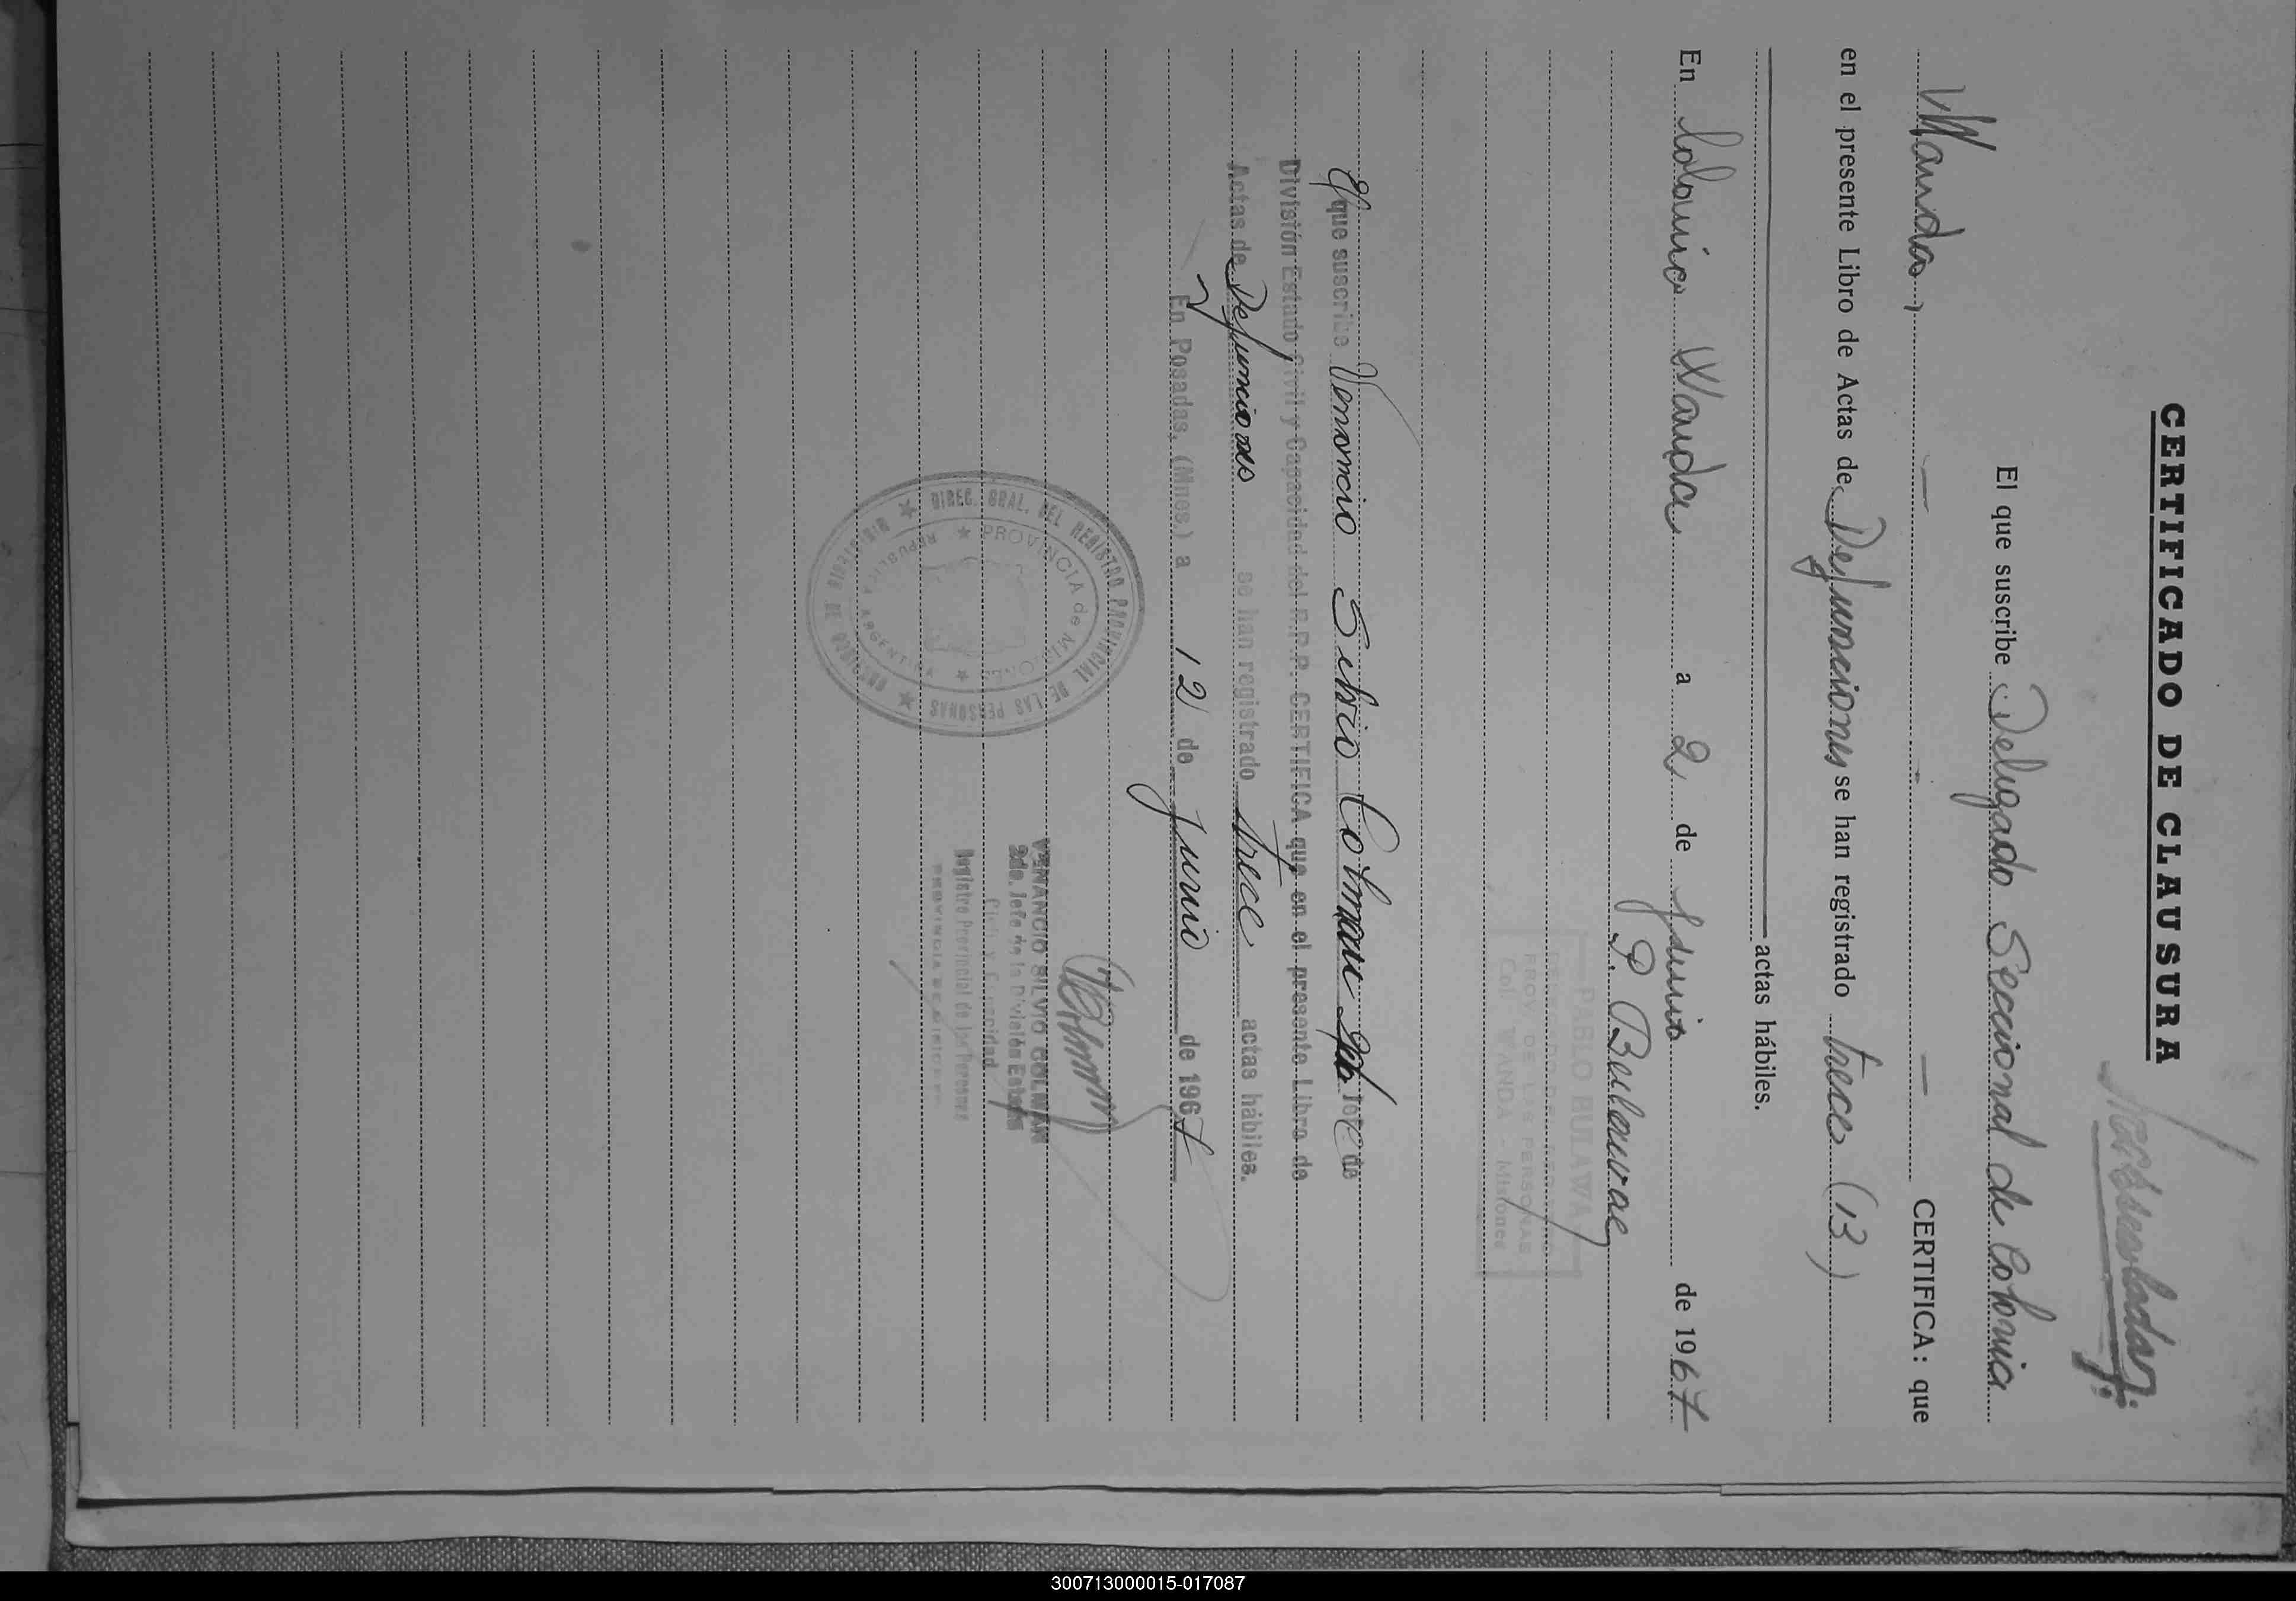 CERTIFICADO DE CLAUSURA
El que suscribe Delegado Seccional de Colonia
Wanda, CERTIFICA: que
en el presente Libro de Actas de Defunciones se han registrado trece (13)
actas hábiles.
En Colonia Wanda a 2 de Junio de 1967
P. Bulawa
PABLO BULAWA
PROV. DE LAS PERSONAS
Col. WANDA - Misiones
El que suscribe Venancio Silvio Colman Jefe de
División Estado Civil y Capacidad del R.P.P. CERTIFICA que en el presente Libro de
Actas de Defunciones se han registrado trece actas hábiles.
En Posadas, (Mnes.) a 12 de Junio de 1967
VENANCIO SILVIO COLMAN
2do. Jefe de la División Estado
Civil y Capacidad
Registro Provincial de las Personas
PROVINCIA DE MISIONES
DIREC. GRAL. DEL REGISTRO PROVINCIAL DE LAS PERSONAS
PROVINCIA de MISIONES
REPUBLICA ARGENTINA
300713000015-017087